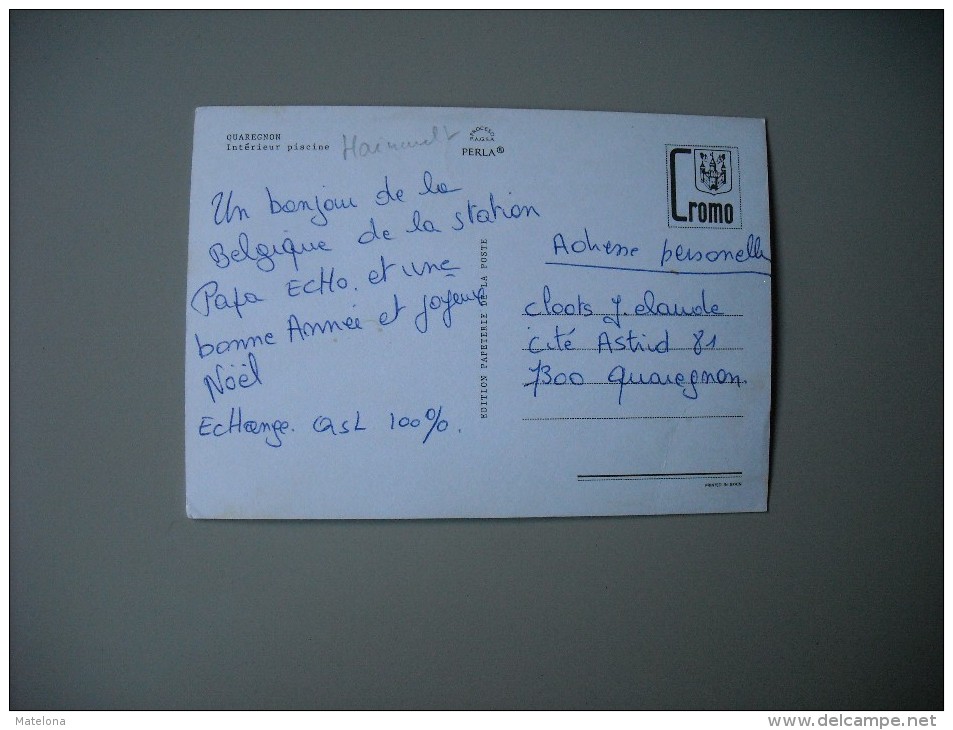 QUAREGNON
Intérieur piscine
Hainault
PROCESO
F.A.G.S.A.
PERLA®
Cromo
Un bonjour de la
Belgique de la station
Papa ECHO. et une
bonne Année et joyeux
Noël
EcHange. QSL 100%.
EDITION PAPETERIE DE LA POSTE
Adresse personelle
Cloots J. claude
Cité Astrid 81
7300 Quaregnon
PRINTED IN SPAIN
Matelona
www.delcampe.net